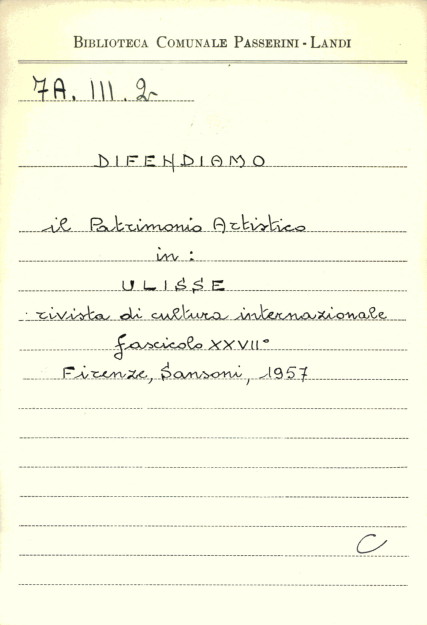 BIBLIOTECA COMUNALE PASSERINI - LANDI
7A. III. 2
DIFENDIAMO
il Patrimonio Artistico
in :
ULISSE
: rivista di cultura internazionale
fascicolo XXVII°
Firenze, Sansoni, 1957
C